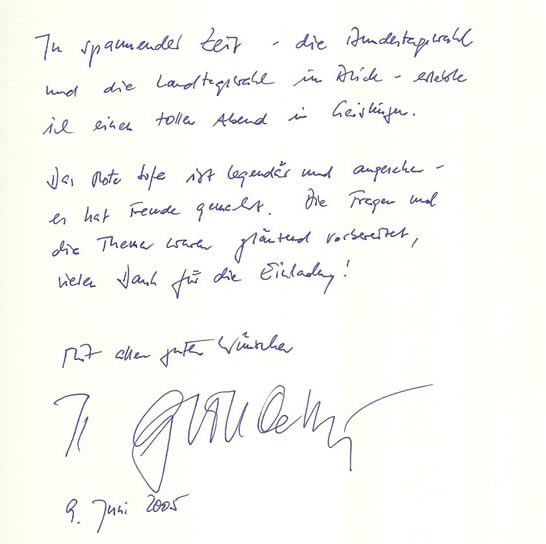 In spannender Zeit - die Bundestagswahl
und die Landtagswahl im Blick - erlebte
ich einen tollen Abend in Geislingen.
Das Rote Sofa ist legendär und angesehen -
es hat Freude gemacht. Die Fragen und
die Themen waren glänzend vorbereitet,
vielen Dank für die Einladung!
Mit allen guten Wünschen
Ihr
9. Juni 2005